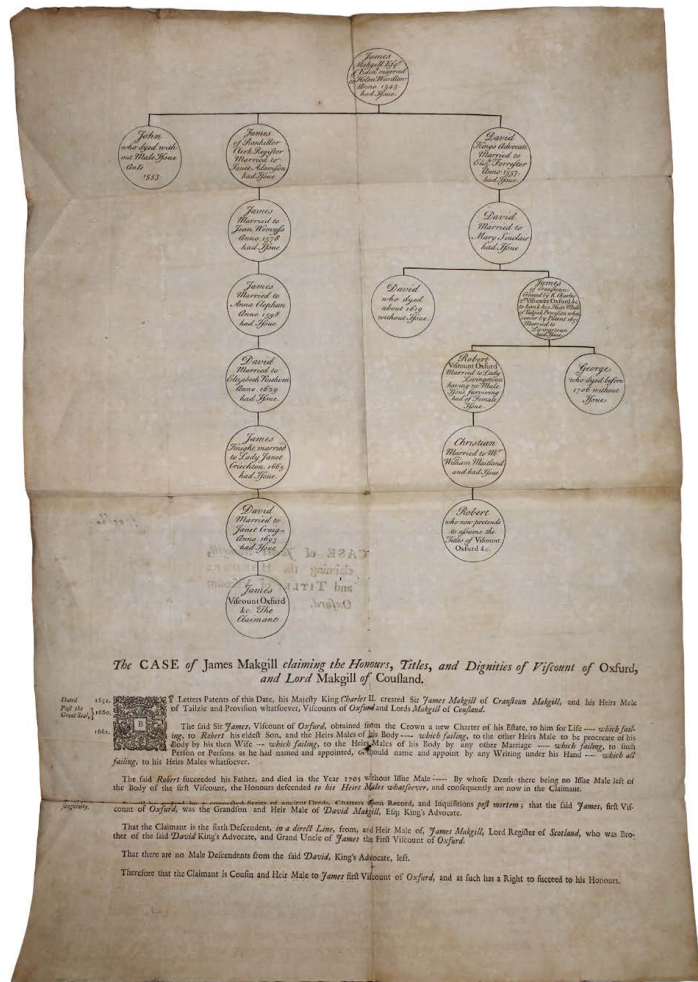 James
Makgill Esqr
of Edinr married
to Helen Wardlaw
Anno 1545
had Issue.
John
who dyed with
out Male Issue
Ante
1553
James
of Rankillor
Clerk Register
Married to
Janet Adamson
had Issue.
David
Kings Advocate
Married to
Eliz. Forrester
Anno 1557.
had Issue.
James
Married to
Jean Wemyss
Anno 1578
had Issue
David
Married to
Mary Sinclair
had Issue
James
Married to
Anna Oliphan
Anno 1598
had Issue.
David
who dyed
about 1619
without Issue.
James
of Cranstoun
Created by K. Charles
Viscount Oxfurd &c
to him & his Heirs Male
of Tailzie & Provision what
soever by Patent 1651
Married to
Livingstown
had Issue
David
Married to
Elizabeth Ruthven
Anno 1629
had Issue.
Robert
Viscount Oxfurd
Married to Lady
Livingstown
having no Male
Issue surviving
had of Female
Issue.
George
who dyed before
1706 without
Issue
James
Knight, married
to Lady Janet
Criechton 1665
had Issue.
Christian
Married to Mr
William Maitland
and had Issue.
David
Married to
Janet Craig
Anno 1693
had Issue
Robert
who now pretends
to assume the
Titles of Viscount
Oxfurd &c.
CASE of James Makgill,
claiming the HONOURS
and TITLES of Viscount
Oxfurd.
James
Viscount Oxfurd
&c. The
Claimant.
The CASE of James Makgill claiming the Honours, Titles, and Dignities of Viscount of Oxfurd,
and Lord Makgill of Cousland.
Dated 1651.
Past the
Great Seal, } 1660.
1661.
BY Letters Patents of this Date, his Majesty King Charles II. created Sir James Makgill of Cranstoun Makgill, and his Heirs Male
of Tailzie and Provision whatsoever, Viscounts of Oxfurd and Lords Makgill of Cousland.
The said Sir James, Viscount of Oxfurd, obtained from the Crown a new Charter of his Estate, to him for Life ---- which fail-
ing, to Robert his eldest Son, and the Heirs Males of his Body ---- which failing, to the other Heirs Male to be procreate of his
Body by his then Wife -- which failing, to the Heirs Males of his Body by any other Marriage ---- which failing, to such
Person or Persons as he had named and appointed, or should name and appoint by any Writing under his Hand ---- which all
failing, to his Heirs Males whatsoever.
The said Robert succeeded his Father, and died in the Year 1705 without Issue Male ---- By whose Death there being no Issue Male left of
the Body of the first Viscount, the Honours descended to his Heirs Males whatsoever, and consequently are now in the Claimant.
ancient Deeds, Charters upon Record, and Inquisitions post mortem; that the said James, first Vis-
count of Oxfurd, was the Grandson and Heir Male of David Makgill, Esq; King's Advocate.
That the Claimant is the sixth Descendent, in a direct Line, from, and Heir Male of, James Makgill, Lord Register of Scotland, who was Bro-
ther of the said David King's Advocate, and Grand Uncle of James the First Viscount of Oxfurd.
That there are no Male Descendents from the said David, King's Advocate, left.
Therefore that the Claimant is Cousin and Heir Male to James first Viscount of Oxfurd, and as such has a Right to succeed to his Honours.